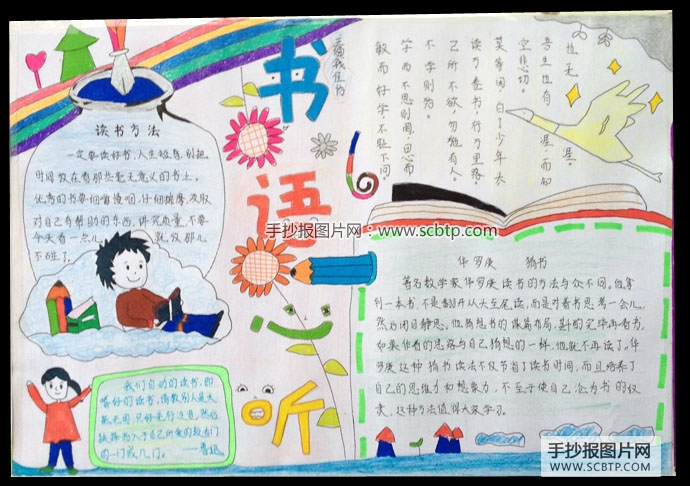 读书方法
一定要读好书,人生短暂,别把
时间放在看那些毫无意义的书上。
优秀的书要细嚼慢咽,仔细揣摩,汲取
对自己有帮助的东西,讲究质量,不要
今天看一点儿
就没那儿
不碰了。
我们自动的读书,即
嗜好的读书,请教别人是大
抵无用,只好先行泛览,然后
抉择而入于自己所爱的较专门
的一门或几门。
——鲁迅
书
语
听
手抄报图片网:www.scbtp.com
也无涯。
吾生也有涯,而知
空悲切。
莫等闲,白了少年头,
读万卷书,行万里路。
己所不欲,勿施有人。
不学则殆。
学而不思则罔,思而
敏而好学,不耻下问
华罗庚 猜书
著名数学家华罗庚读书的方法与众不同。他拿
到一本书,不是翻开从头至尾读,而是对着书思考一会儿,
然后闭目静思。他猜想书的谋篇布局,斟酌完毕再看书,
如果作者的思路与自己猜想的一样,他就不再读了。华
罗庚这种猜书读法不仅节省了读书时间,而且培养了
自己的思维力和想象力,不至于使自己沦为书的奴
隶,这种方法值得大家学习。
手抄报图片网
WWW.SCBTP.COM